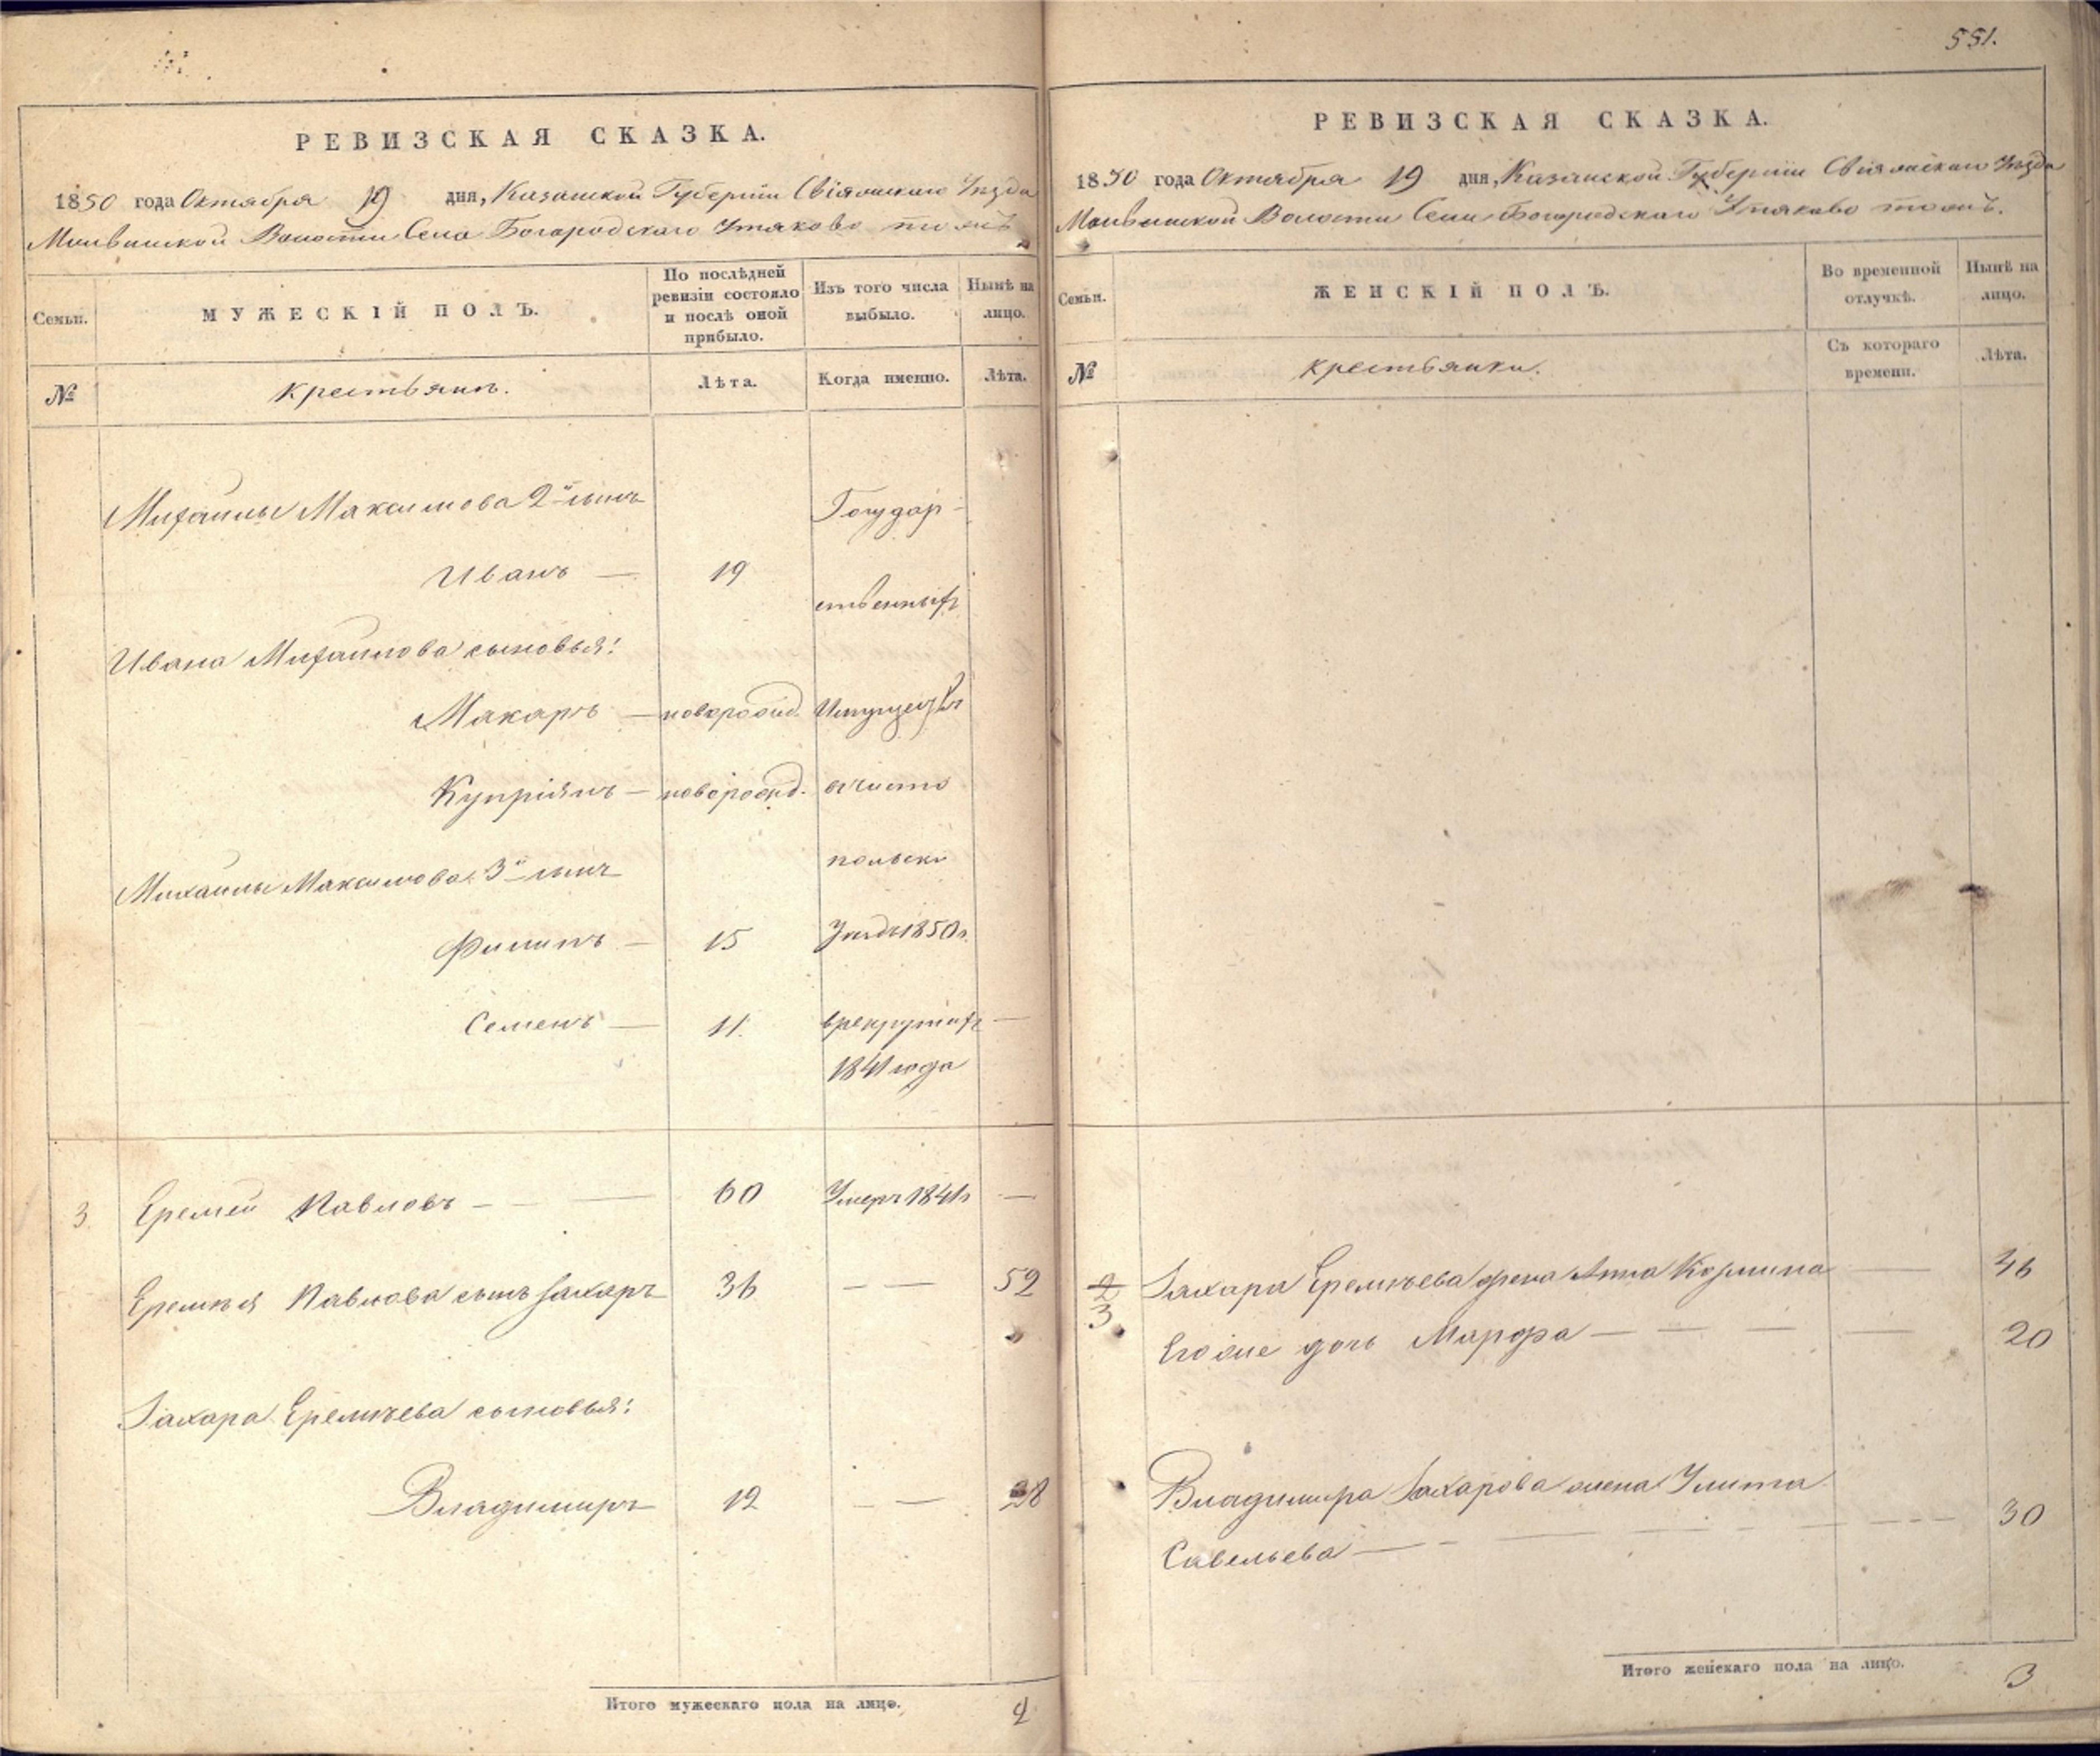 РЕВИЗСКАЯ СКАЗКА.
1850 года Октября 19 дня, Казанской Губернии Свіяжскаго Уѣзда
Волости Села Богородскаго Утяково тожъ
Семьи.
МУЖЕСКІЙ ПОЛЪ.
По послѣдней
ревизіи состояло
и послѣ оной
прибыло.
Изъ того числа
выбыло.
Нынѣ на
лицо.
№
крестьянъ.
Лѣта.
Когда именно.
Лѣта.
Михаилы Максимова 2й сынъ
Государ-
Иванъ — 19
ственныхъ
Ивана Михаилова сыновья:
Макаръ — новорожд. Имуществъ
Купріянъ — новорожд.
Михаилы Максимова 3й сынъ
польски
Филипъ — 15
Уѣздъ 1850 г.
Семенъ — 11. врекрутахъ —
1841 года
3. Еремей Павловъ — — 60 Умеръ 1841г —
Еремѣя Павлова сынъ Захаръ 36 — — 52
Захара Еремѣева сыновья:
Владимиръ 12 — — 28
Итого мужескаго пола на лицо. 2
551.
РЕВИЗСКАЯ СКАЗКА.
1850 года Октября 19 дня, Казанской Губерніи Свіяжскаго Уѣзда
Волости Села Богородскаго Утяково тожъ.
Семьи.
ЖЕНСКІЙ ПОЛЪ.
Во временной
отлучкѣ.
Нынѣ на
лицо.
№
крестьянки.
Съ котораго
времени.
Лѣта.
2 Захара Еремѣева жена Анна Козмина — 46
3 Егоже дочь Марфа — — — — 20
Владимира Захарова жена Улита
Савельева — - — — - — - - - 30
Итого женскаго пола на лицо. 3